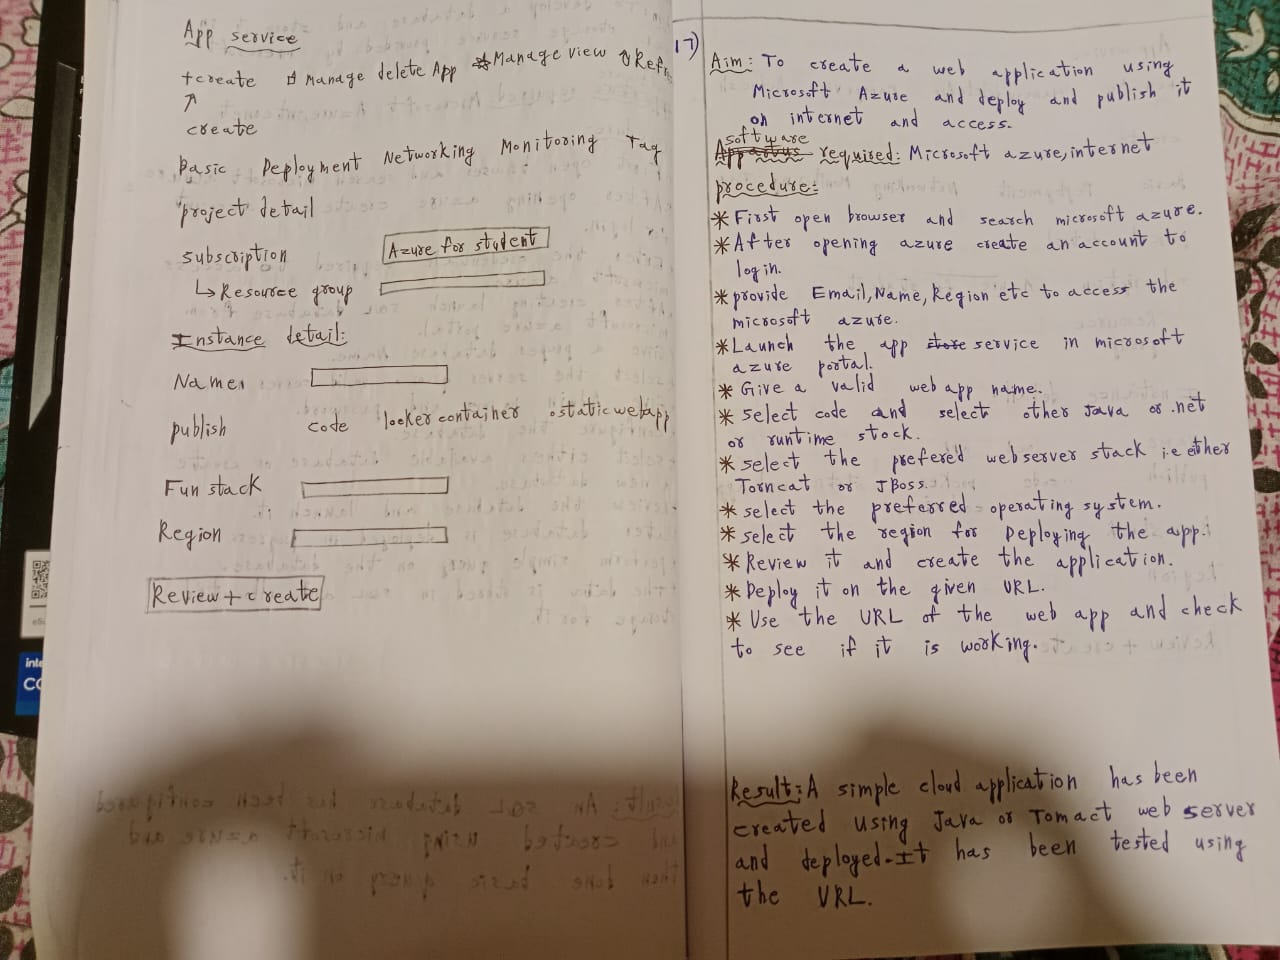 App service
+create Manage delete App Manage view Refr
create
Basic Deployment Networking Monitoring Tag
project detail
subscription Azure for student
Resource group
Instance detail:
Name
publish code locker container static webapp
Fun stack
Region
Review + create
17)
Aim: To create a web application using
Microsoft Azure and deploy and publish it
on internet and access.
software
required: Microsoft azure, internet
procedure:
* First open browser and search microsoft azure.
* After opening azure create an account to
login.
* provide Email, Name, Region etc to access the
microsoft azure.
* Launch the app store service in microsoft
azure portal.
* Give a valid web app name.
* select code and select other Java or .net
or runtime stock.
* select the prefered webserver stack i.e either
Tomcat or JBoss.
* select the preferred operating system.
* select the region for Deploying the app.
* Review it and create the application.
* Deploy it on the given URL.
* Use the URL of the web app and check
to see if it is working.
Result: A simple cloud application has been
created using Java or Tomact web server
and deployed. It has been tested using
the URL.